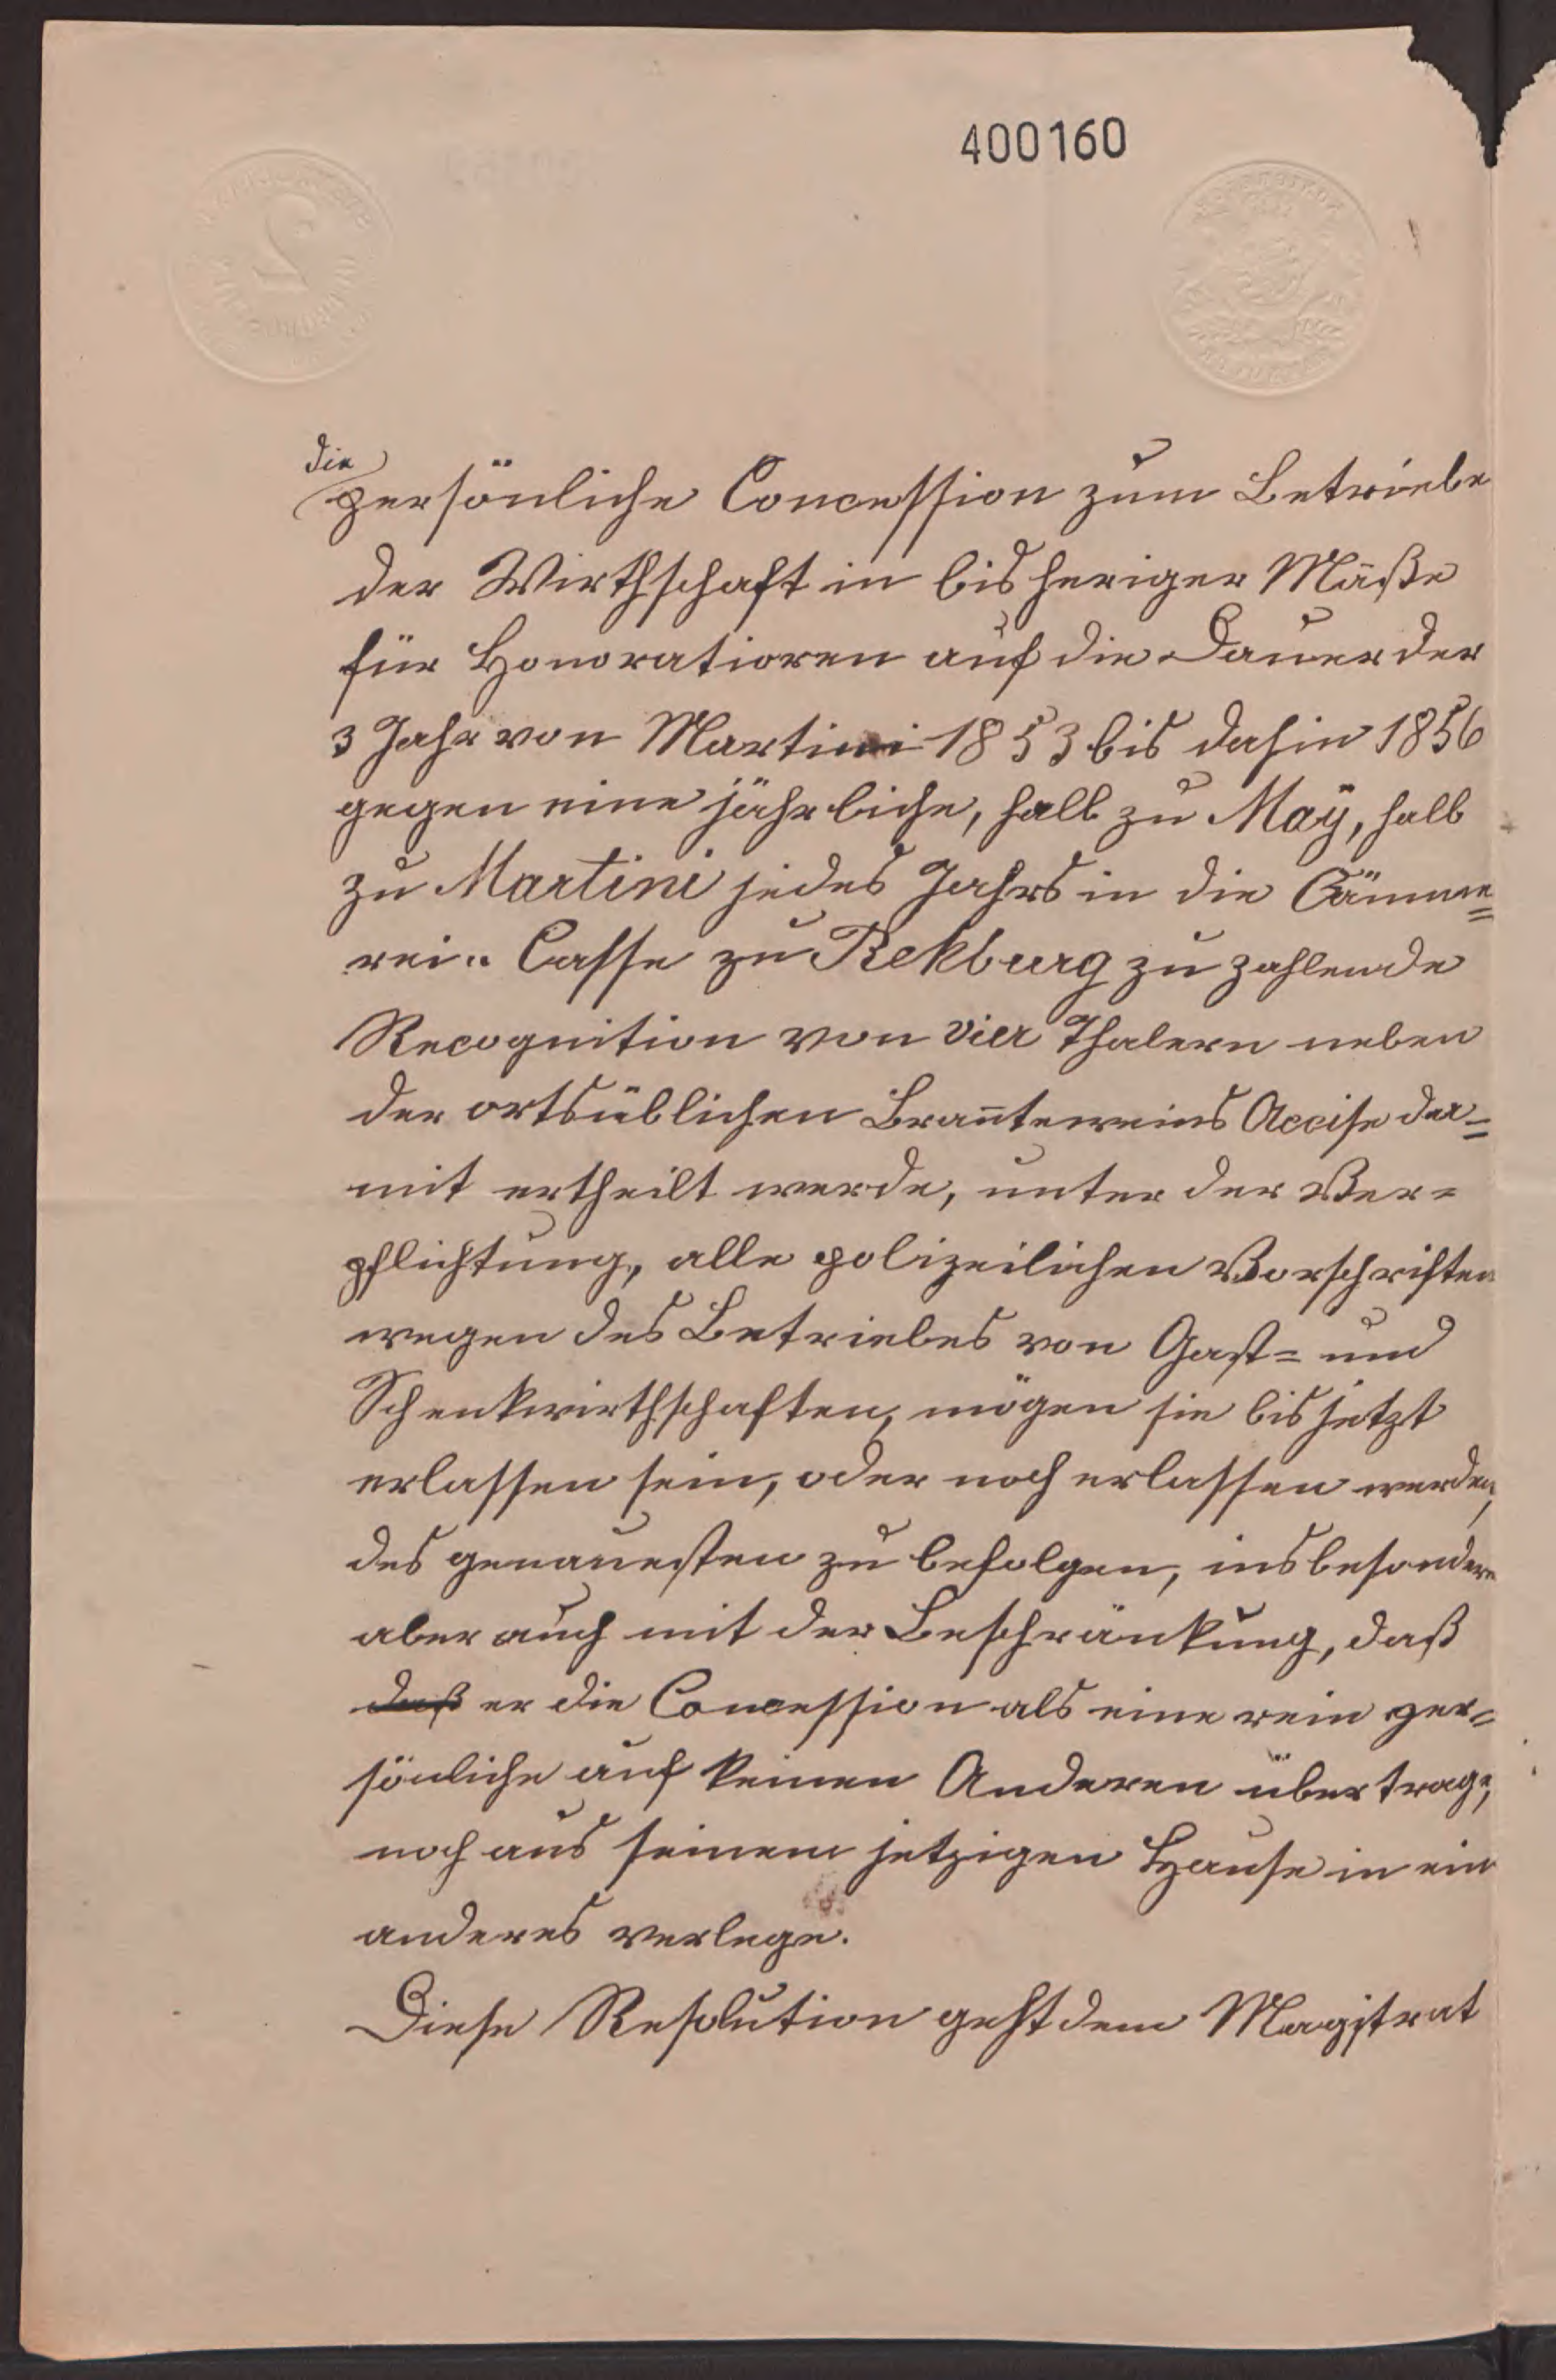 400160
2
die
persönliche Concession zum Betriebe
der Wirthschaft in bisheriger Maße
für Honoratioren auf die Dauer der
3 Jahr von Martini 1853 bis dahin 1856
gegen eine jährliche, halb zu Maÿ, halb
zu Martini jedes Jahrs in die Cämme=
rei=Casse zu Rekburg zu zahlende
Recognition von vier Thalern neben
der ortsüblichen Brañteweins Accise der=
mit ertheilt werde, unter der Ver=
pflichtung, alle polizeilichen Vorschriften
wegen des Betriebes von Gast= und
Schenkwirthschaften, mögen sie bis jetzt
erlassen sein, oder noch erlassen werden,
des genauesten zu befolgen, insbesondere
aber auch mit der Beschränkung, daß
daß er die Concession als eine rein per=
sönliche auf keinen Anderen übertrage,
noch aus seinem jetzigen Hause in ein
anderes verlege.
Diese Resolution geht dem Magistrat